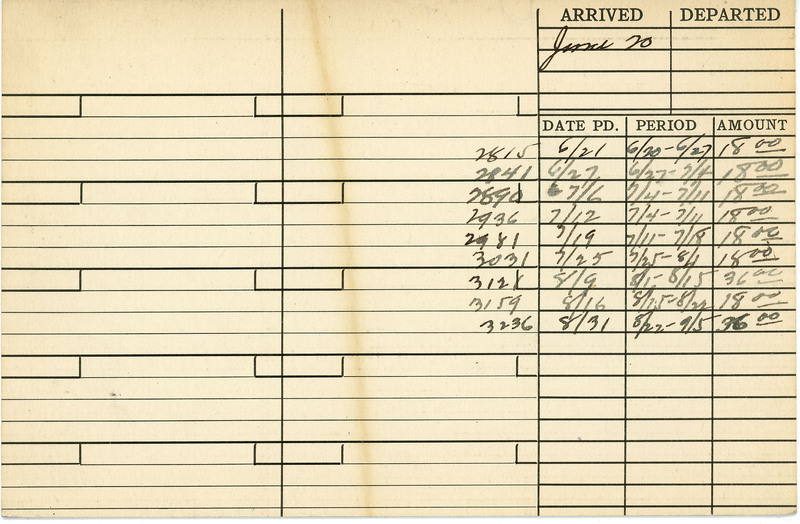 ARRIVED DEPARTED
June 20
DATE PD. PERIOD AMOUNT
2815 6/21 6/20-6/27 18 00
2841 6/27 6/27-7/4 18 00
2890 7/6 7/4-7/11 18 00
2936 7/12 7/4-7/11 18 00
2981 7/19 7/11-7/18 18 00
3031 7/25 7/25-8/1 18 00
3121 8/9 8/1-8/15 36 00
3159 8/16 8/15-8/22 18 00
3236 8/31 8/22-9/5 36 00